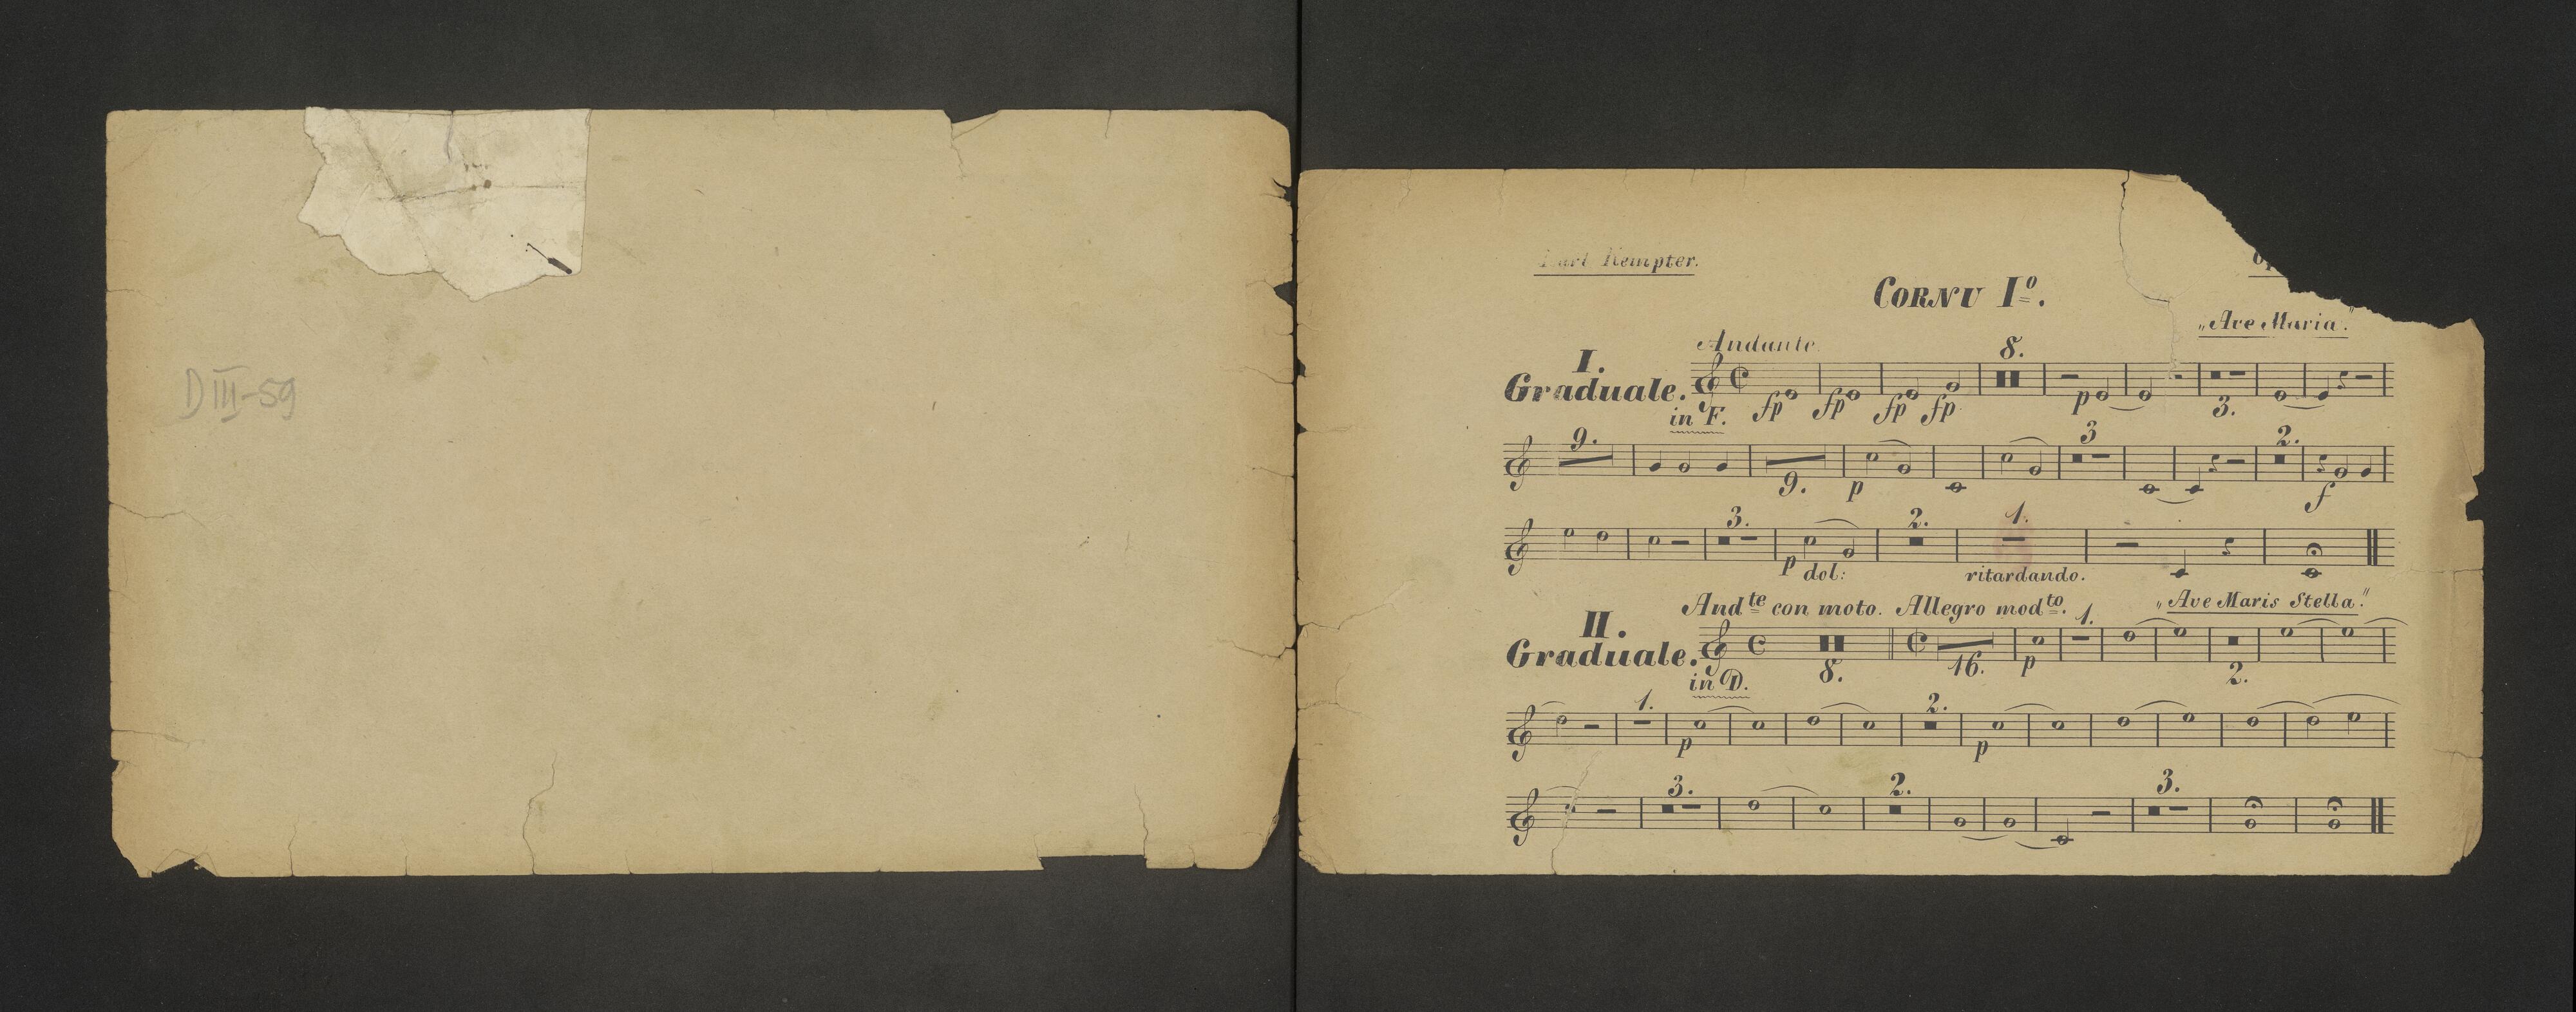 D III-59
Karl Kempter.
Op
CORNU Iº.
„Ave Maria."
Andante
I.
Graduale.
in F.
8.
fp fp fp fp p 3.
9. 3 2.
9. p f
3. 2. 1.
p dol: ritardando.
Andte con moto. Allegro modto. „Ave Maris Stella."
II.
Graduale.
in D.
1.
8. 16. p 2.
1. 2.
p p
3. 2. 3.